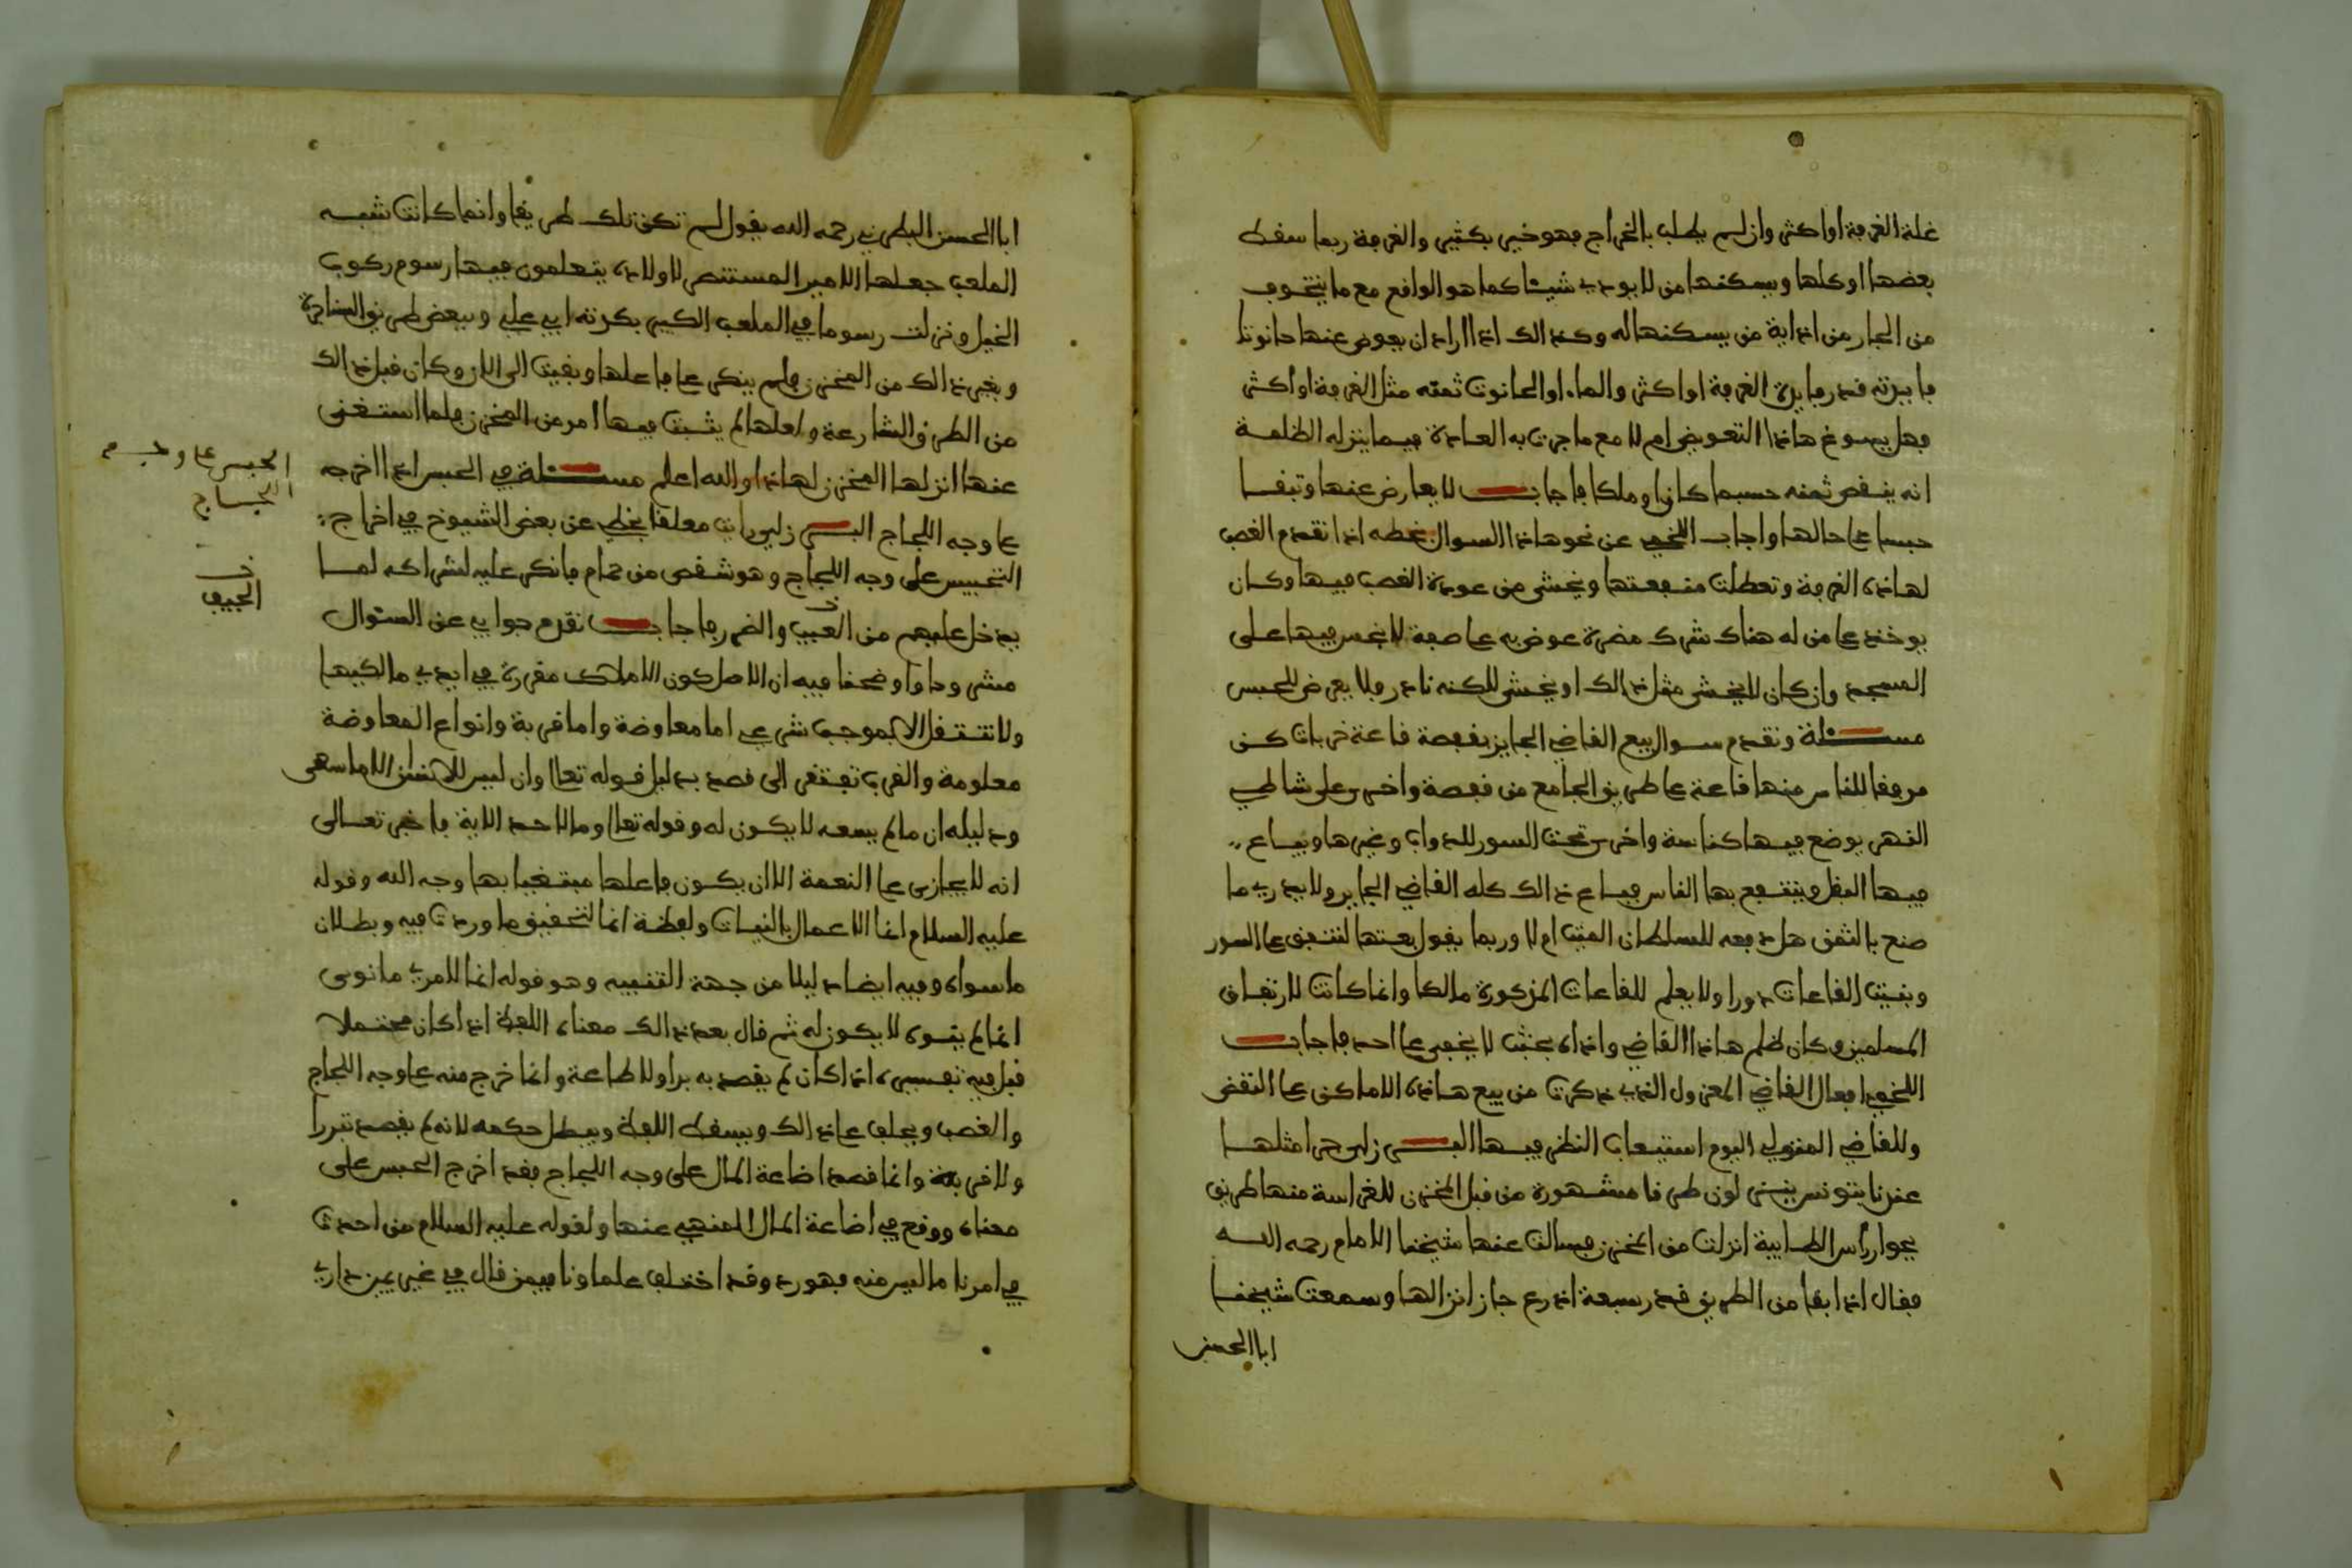 غلة الغرفة او اكثر وان لم يطلب بالخراج فهو خير بكثير والغرفة ربما سقط
بعضها او كلها ويسكنها من لا يودي شيئا كما هو الواقع مع ما يتخوف
من الجار من اذاية من يسكنها له وكذالك اذا اراد ان يعوض عنها حانوتا
فايدته قدر فايدة الغرفة او اكثر والما. او الحانوت ثمنه مثل الغرفة او اكثر
فهل يسوغ هاذا التعويض ام لا مع ما جرت به العادة فيما ينزله الظلمة
انه ينقص ثمنه حسبما كان او ملكا فاجاب لا يعارض عنها وتبقا
حبسا على حالها واجاب اللخمي عن نحو هاذا السوال بخطه اذا تقدم الغصب
لهاذه الغرفة وتعطلت منفعتها ويخشى من عودة الغصب فيها وكان
يوخذ على من له هناك شرك مضرة عوض به على صفة لا بخس فيها على
المسجد وان كان لا يخشى مثل ذالك او يخشى للكنه نادر فلا يعرض للحبس
مسئلة وتقدم سوال بيع القاضي الجايز بقفصة قاعة خربات كن
مرفقا للناس منها قاعة على طريق الجامع من قفصة واخرى على شاطي
النهر يوضع فيها كناسة واخرى تحت السور للدواب وغيرها ويباع
فيها البقل وينتفع بها الناس فباع ذالك كله القاضي الجاير ولا يدري ما
صنع بالثمن هل دفعه للسلطان الميت ام لا وربما يقول بعتها لتنفق على السور
وبنيت القاعات دورا ولا يعلم للقاعات المذكورة مالكا وانما كانت لارتفاق
المسلمين وكان ظلم هاذا القاضي واذاه بحيث لا يخفى على احد فاجاب
اللخمي افعال القاضي المعزول الذي ذكرت من بيع هاذه الاماكن على النقض
وللقاضي المتولي اليوم استيعاب النظر فيها البرزلي جرا مثلها
عندنا بتونس ينزلون طرقا مشهورة من قبل المخزن للغراسة منها طريق
بجوار راس الطابية انزلت من المخزن فسالت عنها شيخنا الامام رحمه الله
فقال اذا بقا من الطريق قدر سبعة اذرع جاز انزالها وسمعت شيخنا
ابا الحسن
ابا الحسن البطرني رحمه الله يقول لم تكن تلك طريقا وانما كانت شبه
الملعب جعلها الامير المستنصر لاولاده يتعلمون فيها رسوم ركوب
الخيل ونزلت رسوما في الملعب الكبير بكرته ابي علي وببعض طريق
وبغير ذالك من المخزن ولم ينكر على فاعلها وبقيت الى الان وكان قبل ذالك
من الطرق الشارعة ولعلها لم يثبت فيها امر من المخزن فلما استغنى
عنها انزلها المخزن لهاذا والله اعلم مسئلة في الحبس اذا اخرجه
على وجه اللجاج البرزلي رايت معلقا بخطي عن بعض الشيوخ في اخراج
التحبيس على وجه اللجاج وهو شقص من حمام فانكر عليه لشراكه لما
يدخل عليهم من العيب والضرر فاجاب تقدم جوابي عن السئوال
مشروحا واوضحنا فيه ان الاصل كون الاملاك مقررة في ايدي مالكيها
ولا تنتقل الا بموجب شرعي اما معاوضة واما قربة وانواع المعاوضة
معلومة والقرب تفتقر الى قصد بدليل قوله تعالى وان ليس للانسان الا ما سعى
ودليله ان ما لم يسعه لا يكون له وقوله تعالى وما لاحد الاية فاخبر تعالى
انه لا يجازى على النعمة الا ان يكون فاعلها مبتغيا بها وجه الله وقوله
عليه السلام انما الاعمال بالنيات ولفظة انما لتحقيق ما وردت فيه وبطلان
ما سواه وفيه ايضا دليلا من جهة التنبيه وهو قوله انما لامرئ ما نوى
انما لم ينوه لا يكون له ثم قال بعد ذالك معناه اللفظ اذا كان محتملا
قبل فيه تفسيره اذا كان لم يقصد به برا ولا طاعة وانما خرج منه على وجه اللجاج
والغصب ويحلف على ذالك ويسقط اللفظ ويبطل حكمه لانه لم يقصد تبررا
ولا قربة وانما قصد اضاعة المال على وجه اللجاج فقد اخرج الحبس على
معناه ووقع في اضاعة المال المنهي عنها ولقوله عليه السلام من احدث
في امرنا ما ليس منه فهو رد وقد اختلف علماونا فيمن قال في غير يمين داري
الحبس على وجه
اللجاج
خـ
الحيف